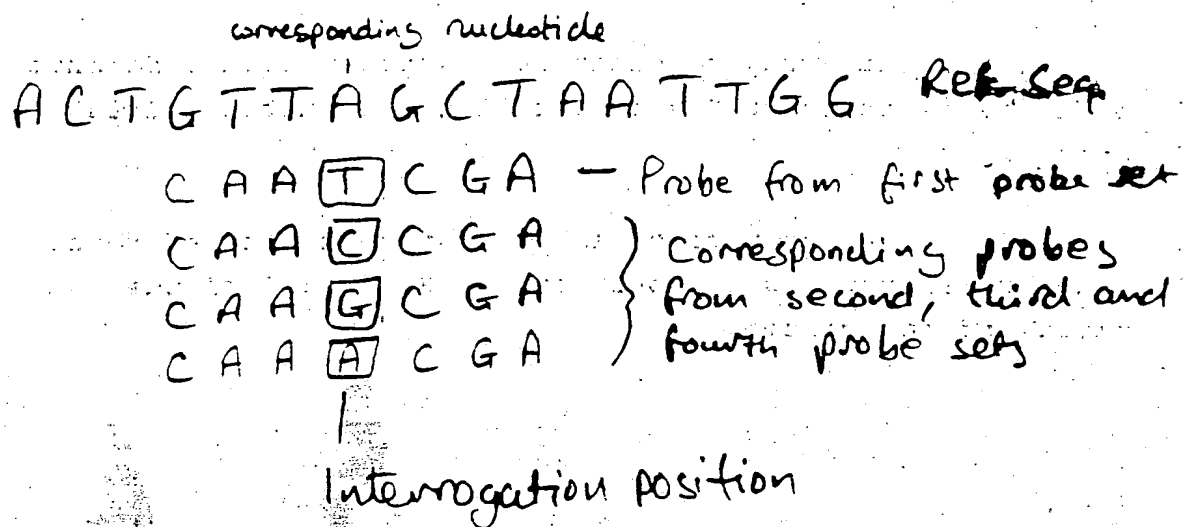 corresponding nucleotide
A C T G T T A G C T A A T T G G Ref Seq
C A A T C G A - Probe from first probe set
C A A C C G A } Corresponding probes
C A A G C G A from second, third and
C A A A C G A fourth probe sets
Interrogation position